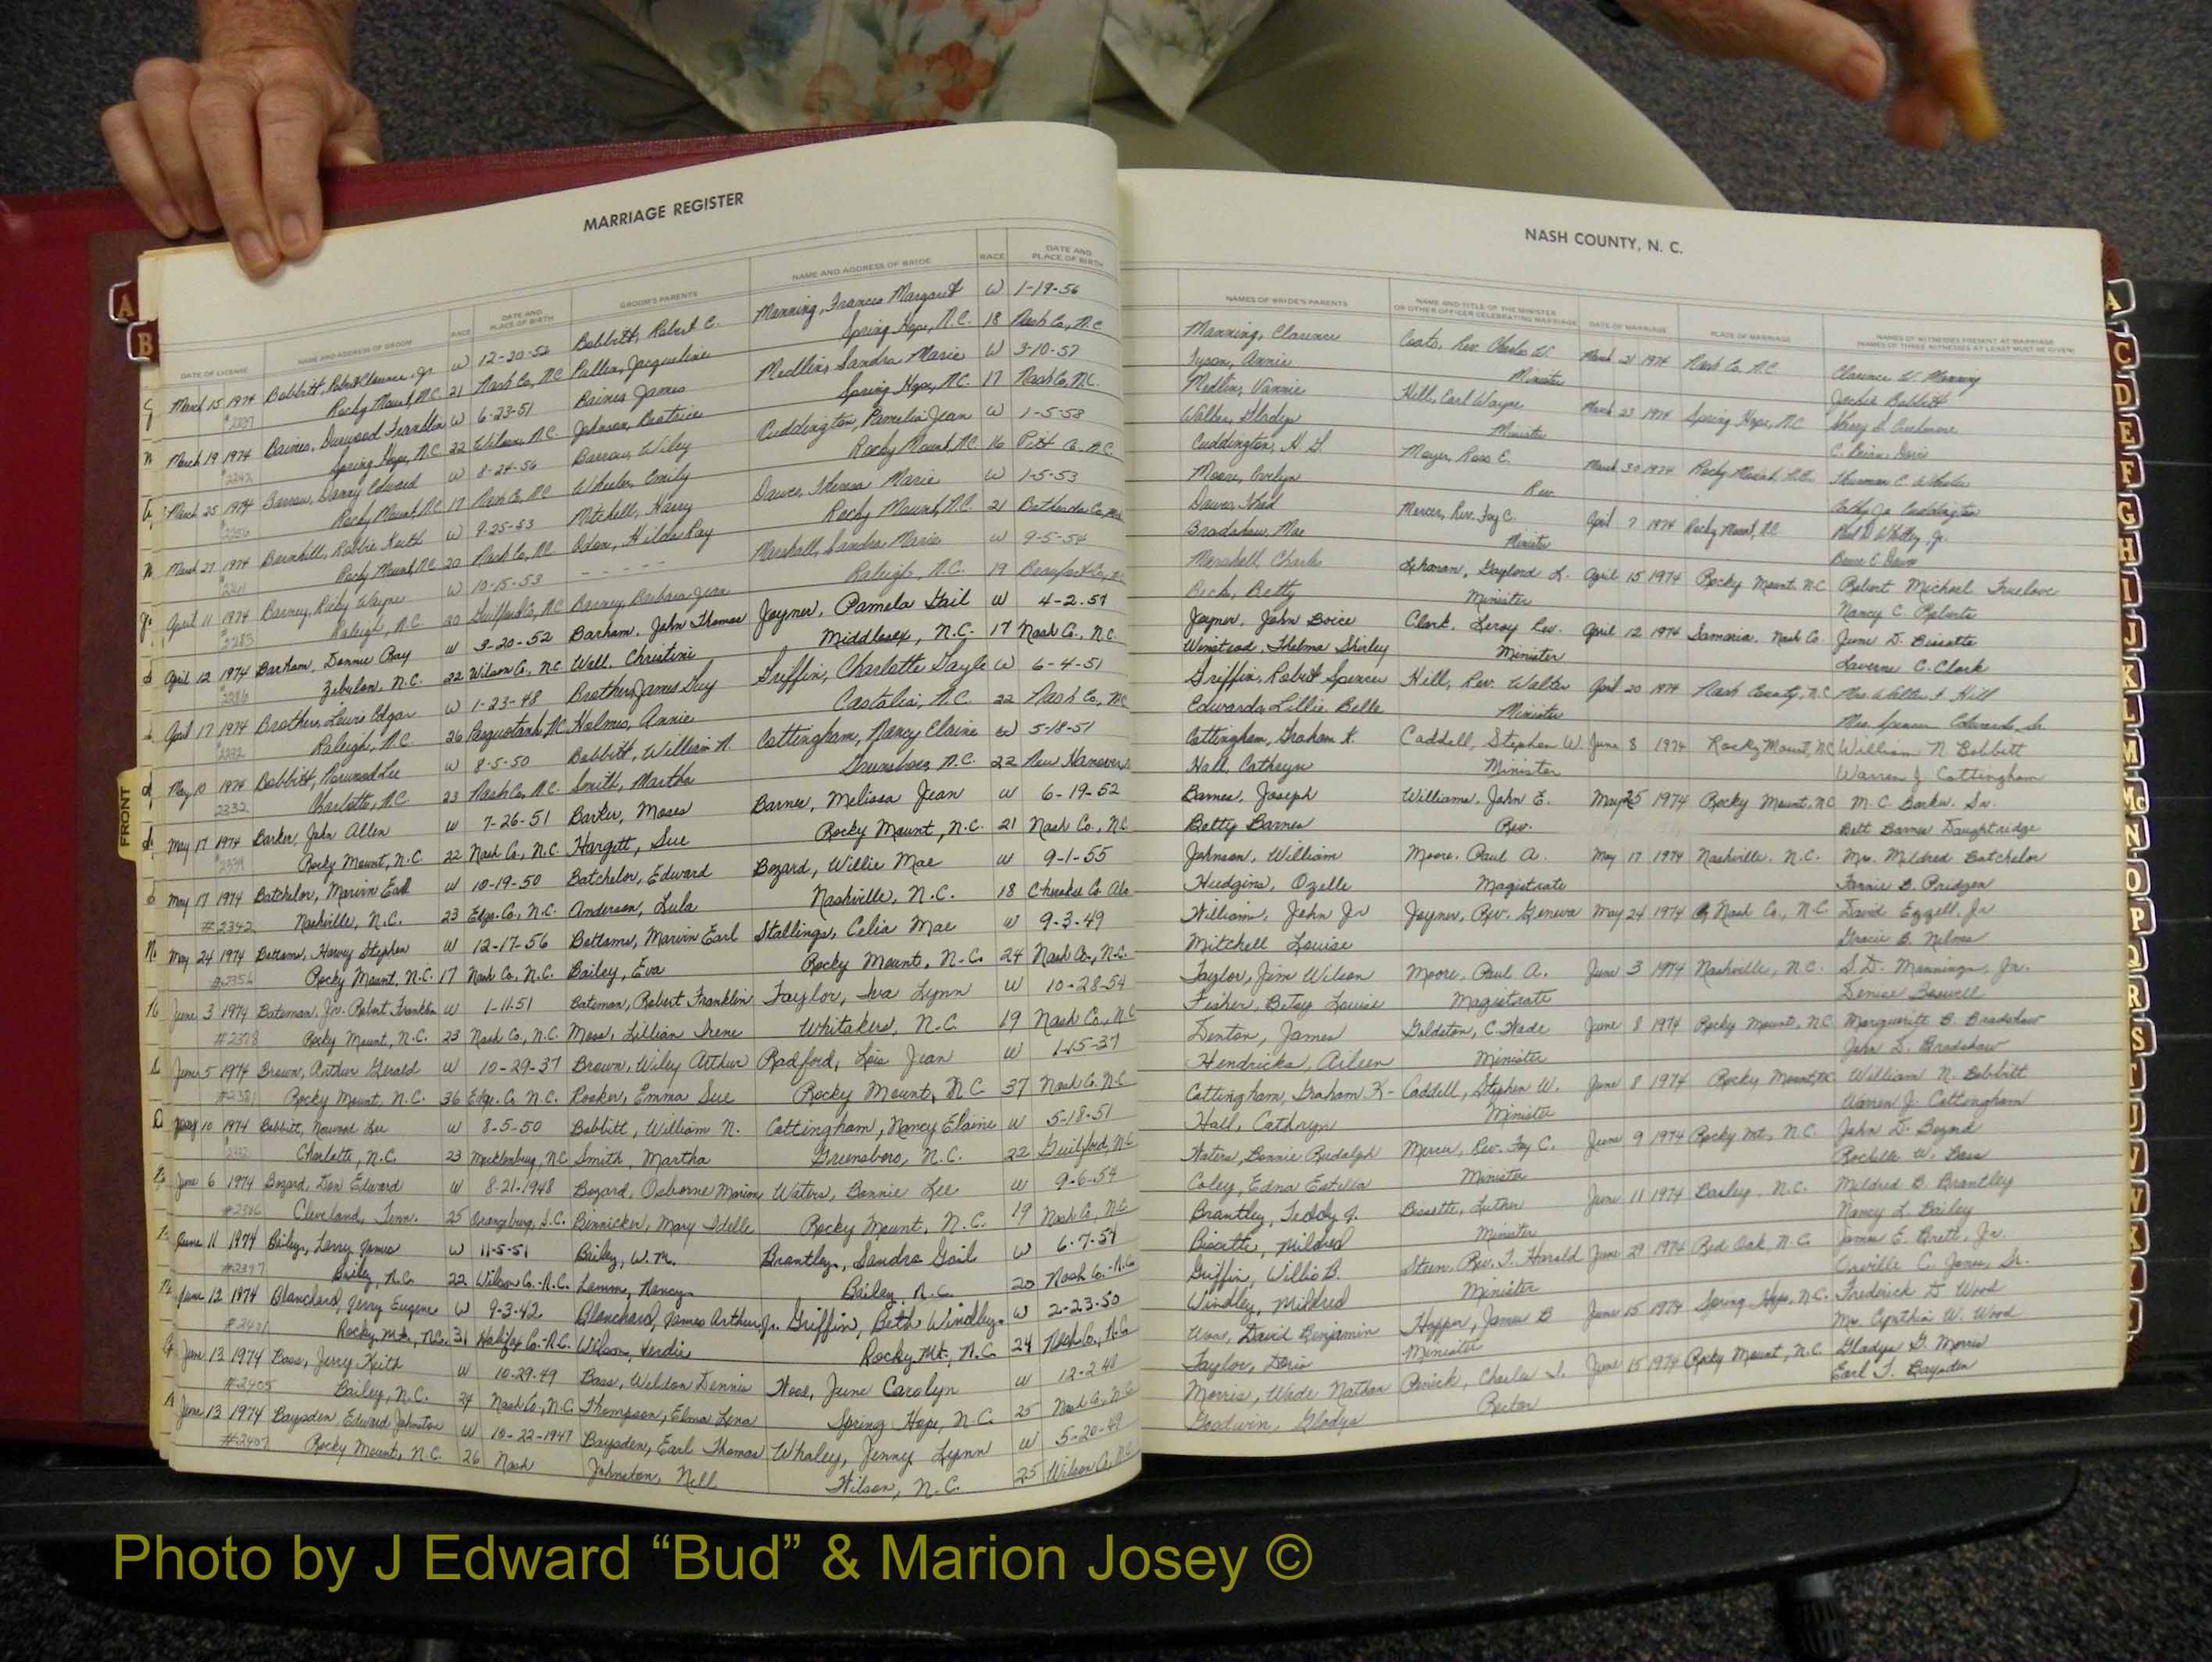 MARRIAGE REGISTER
DATE OF LICENSE NAME AND ADDRESS OF GROOM RACE DATE AND PLACE OF BIRTH GROOM'S PARENTS NAME AND ADDRESS OF BRIDE RACE DATE AND PLACE OF BIRTH
March 15 1974 Bobbitt, Robert Clarence, Jr. W 12-20-52 Bobbitt, Robert C. Manning, Frances Margaret W 1-19-56
Rocky Mount, N.C. 21 Nash Co, N.C. Pullen, Jacqueline Spring Hope, N.C. 18 Nash Co., N.C.
March 19 1974 Baines, Durwood Franklin W 6-23-51 Baines James Medlin, Sandra Marie W 3-10-57
Spring Hope, N.C. 22 Wilson, N.C. Johnson, Beatrice Spring Hope, N.C. 17 Nash Co., N.C.
March 25 1974 Barrow, Danny Edward W 8-24-56 Barrow, Wiley Cuddington, Pamelia Jean W 1-5-58
Rocky Mount, N.C. 17 Nash Co, N.C. Wheeler, Emily Rocky Mount, N.C. 16 Pitt Co. N.C.
March 27 1974 Barnhill, Robbie Keith W 9-25-53 Mitchell, Harry Dawes, Theresa Marie W 1-5-53
Rocky Mount, N.C. 20 Nash Co, N.C. Odom, Hilda Ray Rocky Mount, N.C. 21
April 11 1974 Barney, Ricky Wayne W 10-15-53 - - - - - Marshall, Sandra Marie W 9-5-54
Raleigh, N.C. 20 Guilford Co, N.C. Barney, Barbara Jean Raleigh, N.C. 19 Beaufort Co.,
April 12 1974 Barham, Donnie Ray W 3-20-52 Barham, John Thomas Joyner, Pamela Gail W 4-2-57
#2286 Zebulon, N.C. 22 Wilson Co, N.C. Wall, Christine Middlesex, N.C. 17 Nash Co., N.C.
April 17 1974 Brothers, Edgar W 1-23-48 Brothers, James Guy Griffin, Charlotte Gayle W 6-4-51
Raleigh, N.C. 26 Pasquotank N.C. Holmes, Annie Castalia, N.C. 22 Nash Co, N.C.
May 10 1974 Bobbitt, Norwood Lee W 8-5-50 Bobbitt, William N. Cottingham, Nancy Elaine W 5-18-51
2332 Charlotte, N.C. 23 Nash Co, N.C. Smith, Martha Greensboro, N.C. 22 New Hanover
May 17 1974 Barker, John Allen W 7-26-51 Barker, Moses Barnes, Melissa Jean W 6-19-52
Rocky Mount, N.C. 22 Nash Co., N.C. Hargett, Sue Rocky Mount, N.C. 21 Nash Co., N.C.
May 17 1974 Batchelor, Marvin Earl W 10-19-50 Batchelor, Edward Bozard, Willie Mae W 9-1-55
#2342 Nashville, N.C. 23 Edge. Co., N.C. Anderson, Lula Nashville, N.C. 18 Cherokee Co. Ala
May 24 1974 Bottoms, Harvey Stephen W 12-17-56 Bottoms, Marvin Earl Stallings, Celia Mae W 9-3-49
#2356 Rocky Mount, N.C. 17 Nash Co., N.C. Bailey, Eva Rocky Mount, N.C. 24 Nash Co., N.C.
June 3 1974 Bateman, Jr. Robert Franklin W 1-11-51 Bateman, Robert Franklin Taylor, Iva Lynn W 10-28-54
#2378 Rocky Mount, N.C. 23 Nash Co., N.C. Moss, Lillian Irene Whitakers, N.C. 19 Nash Co., N.C.
June 5 1974 Brown, Arthur Gerald W 10-29-37 Brown, Wiley Arthur Radford, Lois Jean W 1-15-37
#2381 Rocky Mount, N.C. 36 Edge. Co. N.C. Rooker, Emma Sue Rocky Mount, N.C. 37 Nash Co. N.C.
May 10 1974 Bobbitt, Norwood Lee W 8-5-50 Bobbitt, William N. Cottingham, Nancy Elaine W 5-18-51
Charlotte, N.C. 23 Mecklenburg, N.C. Smith, Martha Greensboro, N.C. 22 Guilford, N.C.
June 6 1974 Bozard, Don Edward W 8-21-1948 Bozard, Osborne Marion Waters, Bonnie Lee W 9-6-54
#2386 Cleveland, Tenn. 25 Orangeburg, S.C. Binnicker, Mary Idelle Rocky Mount, N.C. 19 Nash Co., N.C.
June 11 1974 Bailey, Larry James W 11-5-51 Bailey, W.M. Brantley, Sandra Gail W 6-7-51
#2397 Bailey, N.C. 22 Wilson Co. N.C. Lamm, Nancy Bailey, N.C. 20 Nash Co. N.C.
June 12 1974 Blanchard, Jerry Eugene W 9-3-42 Blanchard, James Arthur, Jr. Griffin, Beth Windley W 2-23-50
#2401 Rocky Mt., N.C. 31 Halifax Co. N.C. Wilson, Verdie Rocky Mt., N.C. 24 Nash Co., N.C.
June 13 1974 Bass, Jerry Keith W 10-29-49 Bass, Weldon Dennis Wood, June Carolyn W 12-2-48
#2405 Bailey, N.C. 24 Nash Co., N.C. Thompson, Elma Lena Spring Hope, N.C. 25 Nash Co, N.C.
June 13 1974 Baysden Edward Johnston W 10-22-1947 Baysden, Earl Thomas Whaley, Jenny Lynn W 5-20-49
#2407 Rocky Mount, N.C. 26 Nash Johnston, Nell Wilson, N.C. 25 Wilson Co, N.C.
NASH COUNTY, N. C.
NAMES OF BRIDE'S PARENTS NAME AND TITLE OF THE MINISTER OR OTHER OFFICER CELEBRATING MARRIAGE DATE OF MARRIAGE PLACE OF MARRIAGE NAMES OF WITNESSES PRESENT AT MARRIAGE (NAMES OF THREE WITNESSES AT LEAST MUST BE GIVEN)
Manning, Clarence Coats, Rev. Charles W. March 21 1974 Nash Co. N.C. Clarence W. Manning
Tyson, Annie Minister Jackie Bobbitt
Medlin, Vannie Hill, Carl Wayne March 23 1974 Spring Hope, N.C.
Walker, Gladys Minister C. Brian Davis
Cuddington, H. G. Moyer, Ross E. March 30 1974 Rocky Mount, N.C. Thurman C. Wheeler
Moore, Evelyn Rev. Cathy Jo Cuddington
Dawes, Thad Mercer, Rev. Fay C. April 7 1974 Rocky Mount, N.C. Paul D. Whitley, Jr.
Bradshaw, Mae Minister
Marshall, Charles Lehman, Gaylord L. April 15 1974 Rocky Mount, N.C. Robert Michael Truelove
Beck, Betty Minister Nancy C. Roberts
Joyner, John Boice Clark, Leroy Rev. April 12 1974 Samaria, Nash Co June D. Bissette
Winstead, Thelma Shirley Minister Laverne C. Clark
Griffin, Robert Spencer Hill, Rev. Walter April 20 1974 Nash County, N.C. Mrs. Walter Hill
Edwards, Lillie Belle Minister Mrs. Spencer Edwards, Sr.
Cottingham, Graham K. Caddell, Stephen W. June 8 1974 Rocky Mount, N.C. William N Bobbitt
Hall, Cathryn Minister Warren J. Cottingham
Barnes, Joseph Williams, John E. May 25 1974 Rocky Mount, N.C. M. C. Barker, Sr.
Betty Barnes Rev. Bett Barnes Daughtridge
Johnson, William Moore, Paul A. May 17 1974 Nashville, N.C. Mrs. Mildred Batchelor
Hudgins, Ozelle Magistrate Fannie B. Pridgen
William, John Jr Joyner, Rev. Geneva May 24 1974 Nash Co., N.C. David Ezzell, Jr
Mitchell Louise Gracie B. Nelms
Taylor, Jim Wilson Moore, Paul A. June 3 1974 Nashville, N.C. S. D. Mannings, Jr.
Fisher, Betsy Louise Magistrate Denise Boswell
Denton, James Goldston, C. Wade June 8 1974 Rocky Mount, N.C. Marguerite B. Bradshaw
Hendricks, Aileen Minister John D. Bradshaw
Cottingham, Graham K- Caddell, Stephen W. June 8 1974 Rocky Mount, N.C. William N. Bobbitt
Hall, Cathryn Minister Warren J. Cottingham
Waters, Bonnie Rudolph Mercer, Rev. Fay C. June 9 1974 Rocky Mt., N.C. John D. Bozard
Coley, Edna Estella Minister Rochelle W. Bass
Brantley, Teddy J. Bissette, Luther June 11 1974 Bailey, N.C. Mildred B. Brantley
Bissette, Mildred Minister Nancy L. Bailey
Griffin, Willie B. Steen, Rev. T. Harold June 29 1974 Red Oak, N.C. James E. Brett, Jr
Windley, Mildred Minister Orville C. Jones, Sr.
David Benjamin Hopper, James B June 15 1974 Spring Hope, N.C. Frederick D Wood
Taylor, Doris Minister Mrs. Cynthia W. Wood
Morris, Wade Nathan Penick, Charles I. June 15 1974 Rocky Mount, N.C. Gladys G. Morris
Goodwin, Gladys Rector Earl T. Baysden
A
B
FRONT
A
C
D
E
F
G
H
I
J
K
L
M
Mc
N
O
P
Q
R
S
T
U
V
W
Photo by J Edward “Bud” & Marion Josey ©